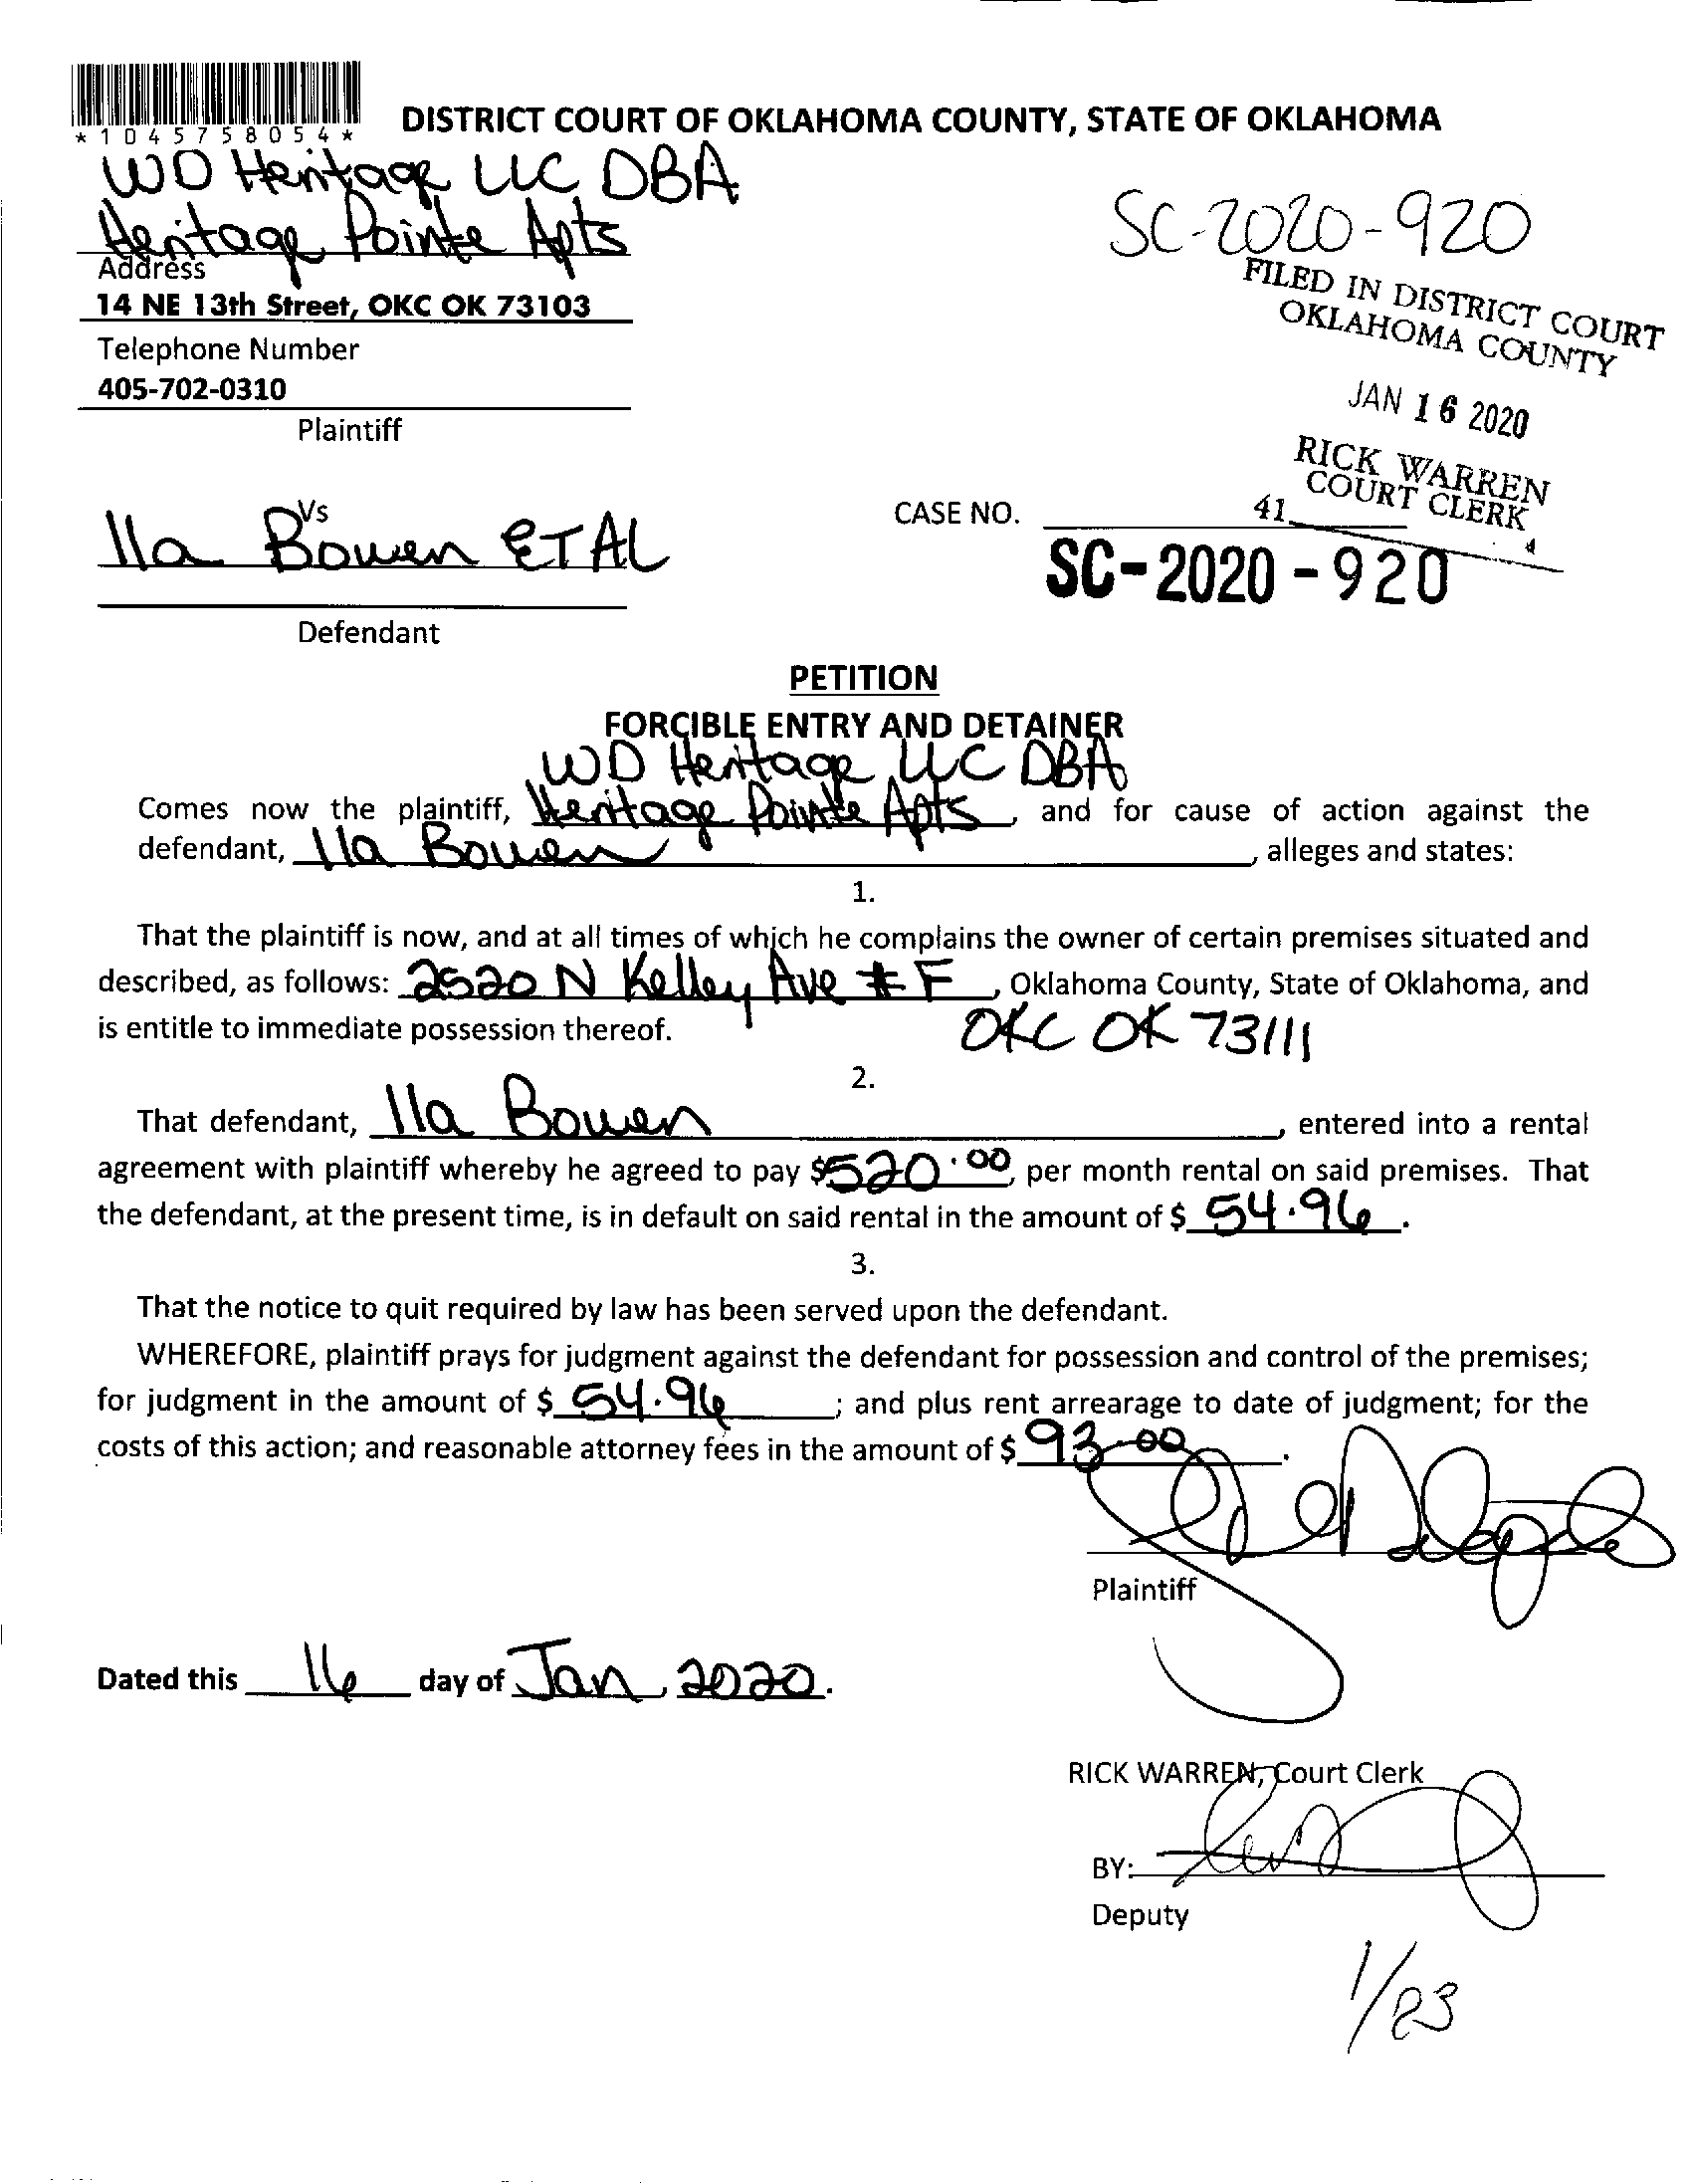 *1045758054*
DISTRICT COURT OF OKLAHOMA COUNTY, STATE OF OKLAHOMA
WD Heritage LLC DBA
Heritage Pointe Apts
Address
14 NE 13th Street, OKC OK 73103
Telephone Number
405-702-0310
Plaintiff
SC-2020-920
FILED IN DISTRICT COURT
OKLAHOMA COUNTY
JAN 16 2020
RICK WARREN
COURT CLERK
41
Vs
Ila Bowen ET AL
Defendant
CASE NO.
SC-2020-920
PETITION
FORCIBLE ENTRY AND DETAINER
WD Heritage LLC DBA
Comes now the plaintiff, Heritage Pointe Apts, and for cause of action against the
defendant, Ila Bowen, alleges and states:
1.
That the plaintiff is now, and at all times of which he complains the owner of certain premises situated and
described, as follows: 2520 N Kelley Ave # F, Oklahoma County, State of Oklahoma, and
is entitle to immediate possession thereof. OKC OK 73111
2.
That defendant, Ila Bowen, entered into a rental
agreement with plaintiff whereby he agreed to pay $520.00, per month rental on said premises. That
the defendant, at the present time, is in default on said rental in the amount of $ 54.96.
3.
That the notice to quit required by law has been served upon the defendant.
WHEREFORE, plaintiff prays for judgment against the defendant for possession and control of the premises;
for judgment in the amount of $ 54.96; and plus rent arrearage to date of judgment; for the
costs of this action; and reasonable attorney fees in the amount of $ 93.00.
Plaintiff
Dated this 16 day of Jan, 2020.
RICK WARREN, Court Clerk
BY:
Deputy
1/23